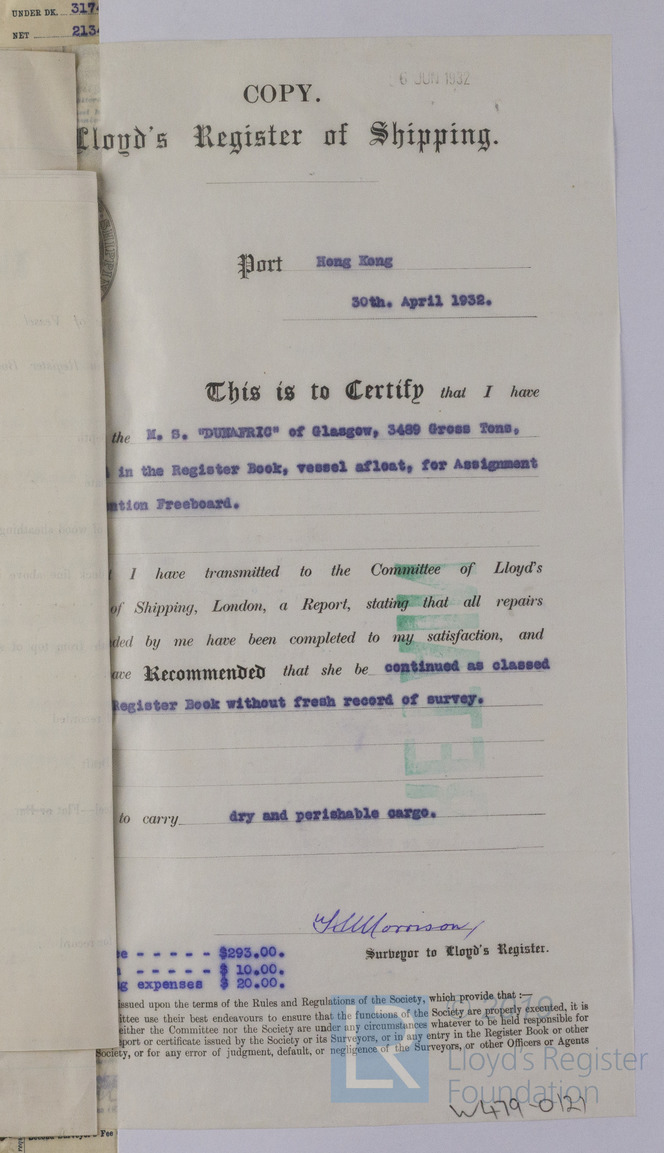 UNDER DK.
NET
COPY.
6 JUN 1932
Lloyd's Register of Shipping.
Port Hong Kong
30th. April 1932.
This is to Certify that I have
the M. S. "DUNAFRIC" of Glasgow, 3489 Gross Tons,
in the Register Book, vessel afloat, for Assignment
Freeboard.
I have transmitted to the Committee of Lloyd's
of Shipping, London, a Report, stating that all repairs
by me have been completed to my satisfaction, and
Recommended that she be continued as classed
Register Book without fresh record of survey.
to carry dry and perishable cargo.
Morrison
Surveyor to Lloyd's Register.
- - - - - $293.00.
- - - - - $ 10.00.
expenses $ 20.00.
issued upon the terms of the Rules and Regulations of the Society, which provide that :—
use their best endeavours to ensure that the functions of the Society are properly executed, it is
either the Committee nor the Society are under any circumstances whatever to be held responsible for
or certificate issued by the Society or its Surveyors, or in any entry in the Register Book or other
Society, or for any error of judgment, default, or negligence of the Surveyors, or other Officers or Agents
© 2019
LR Lloyd's Register
Foundation
W479-0121
Fee